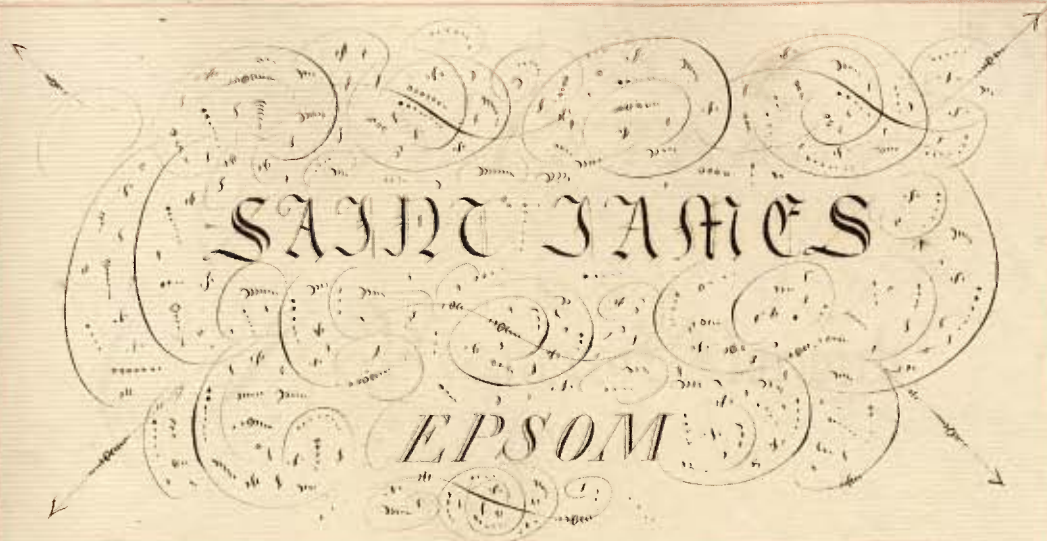 SAINT JAMES
EPSOM